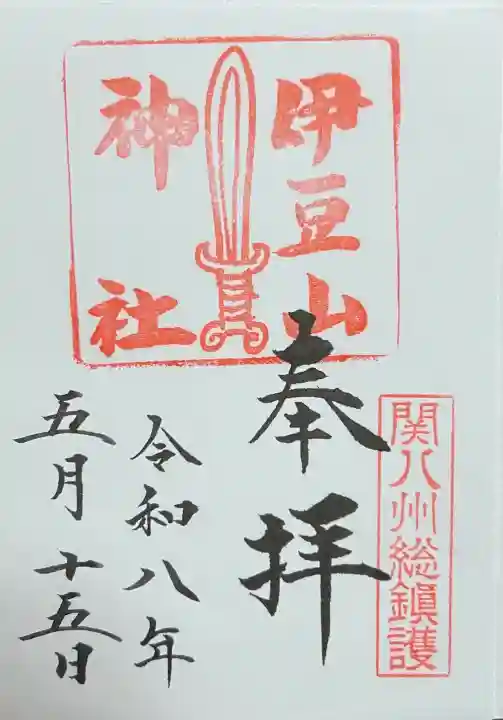 関八州総鎮護
伊豆山
神社
奉拝
令和八年
五月十五日